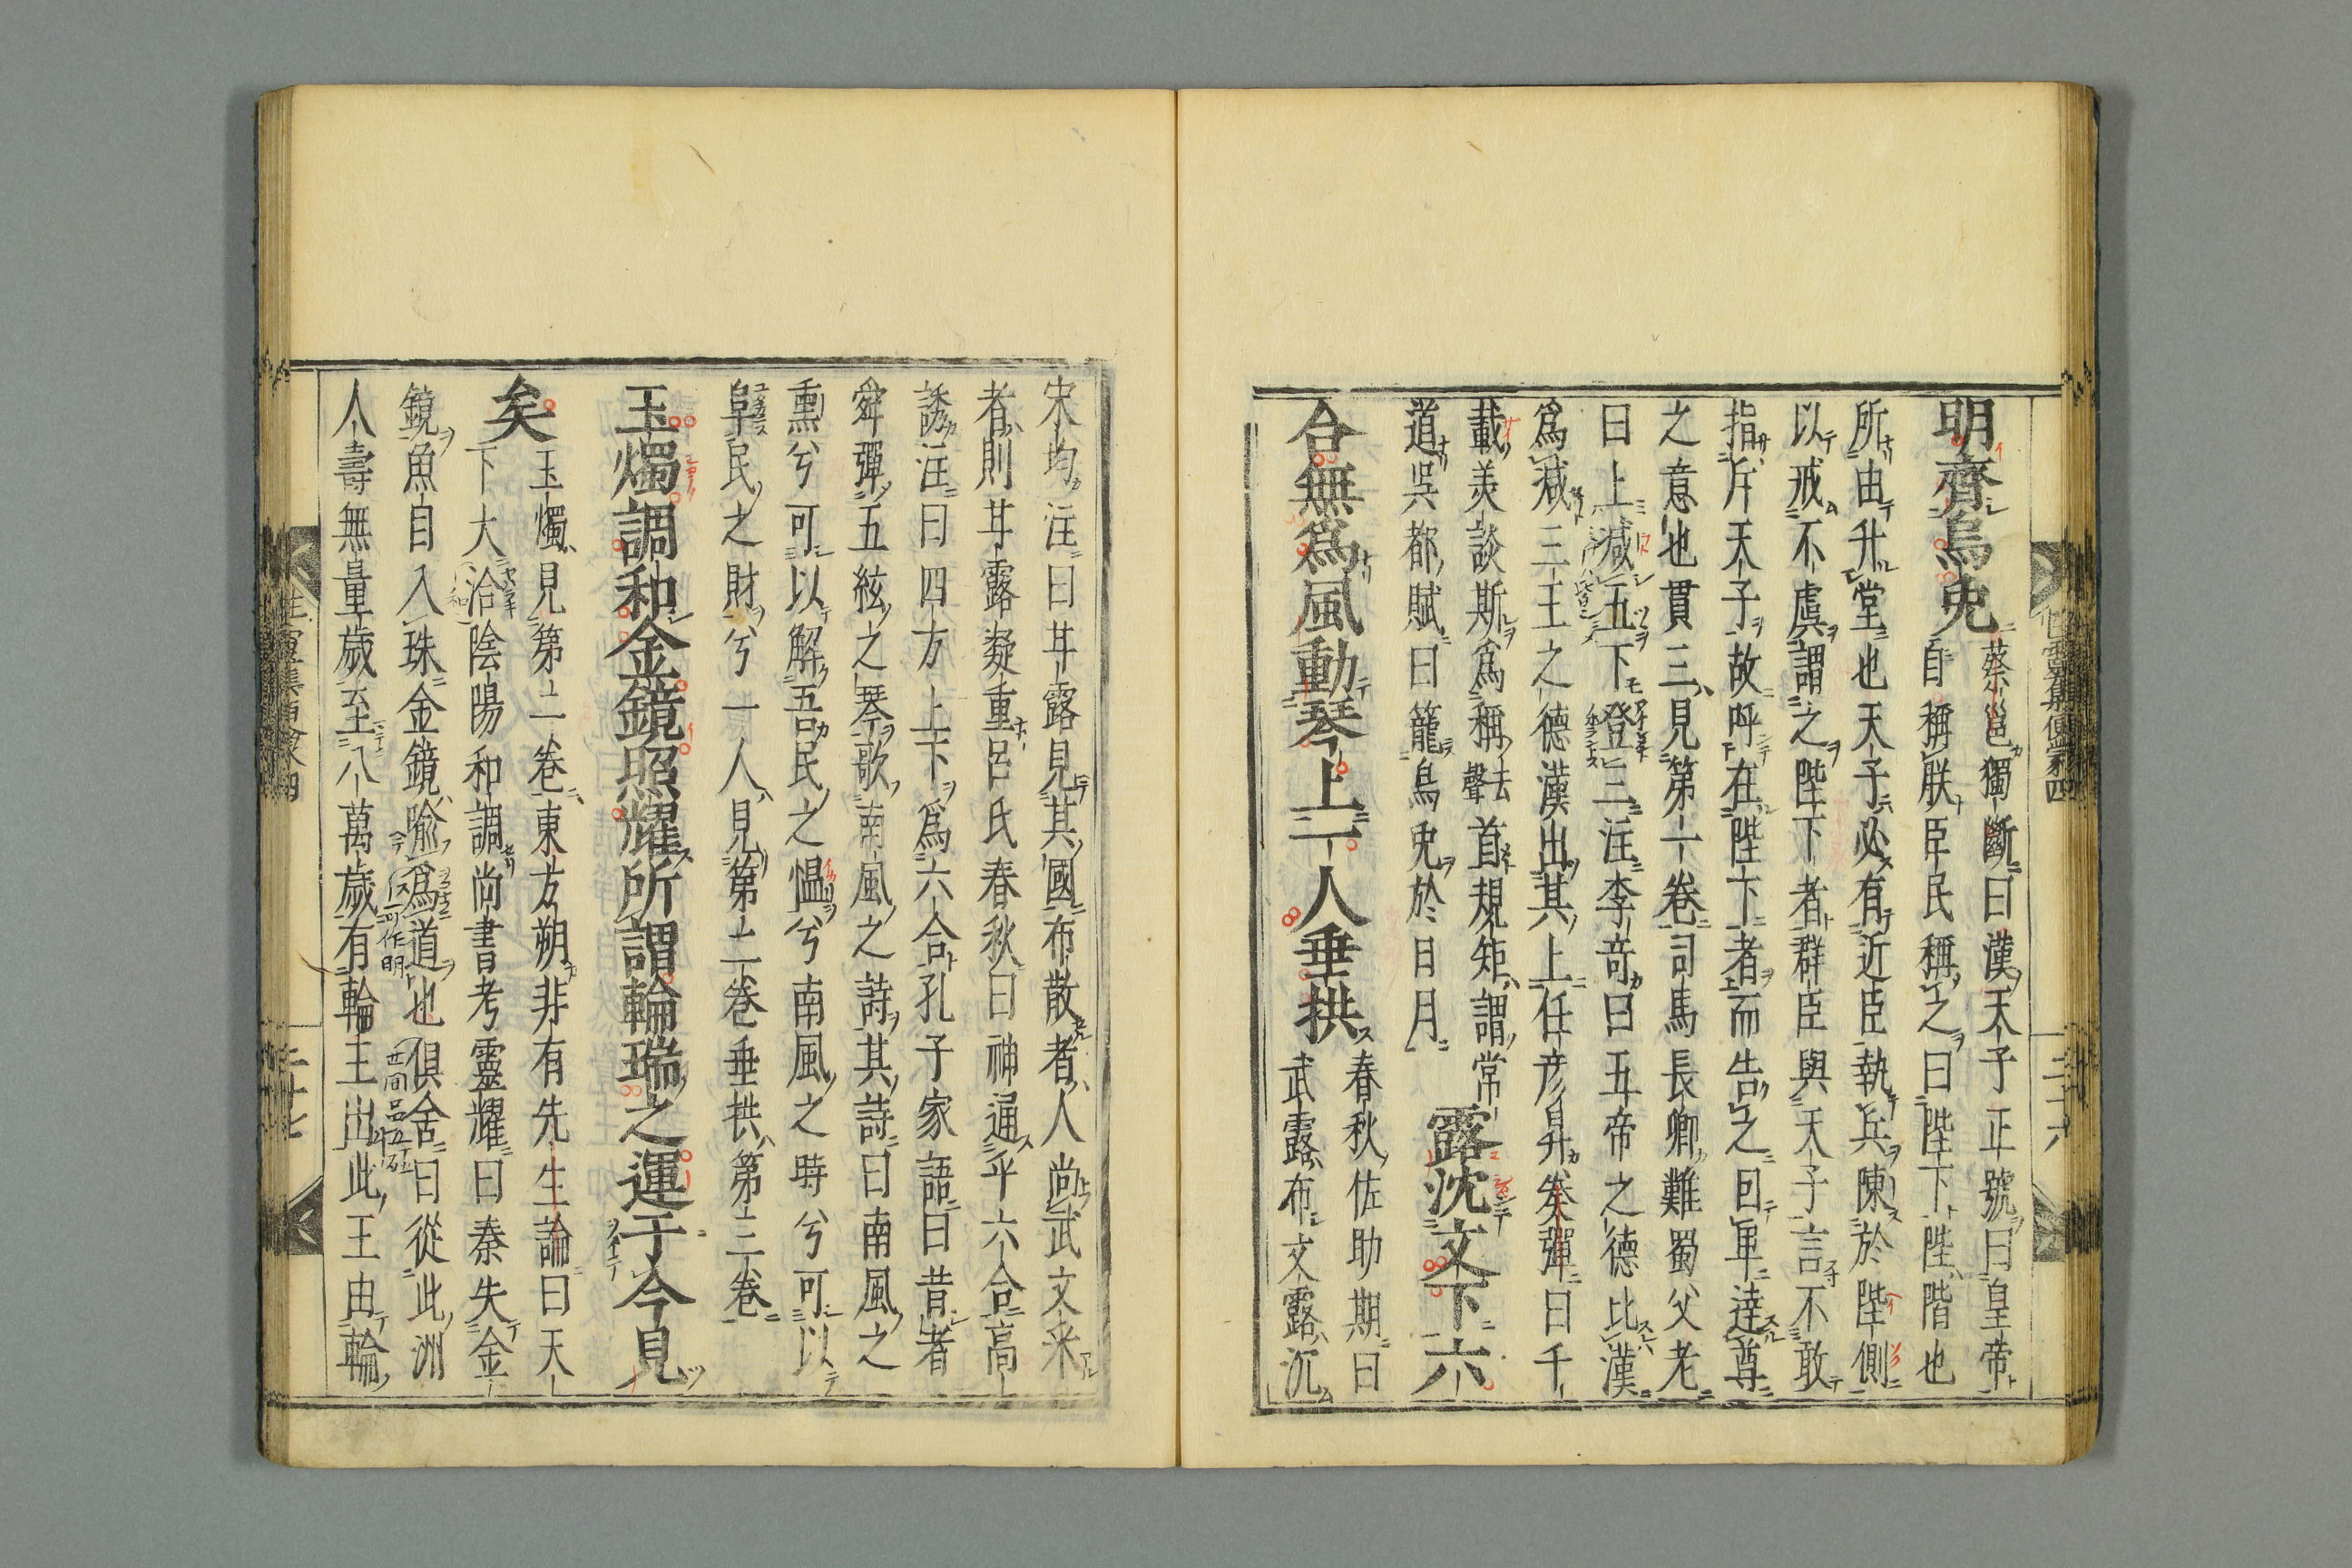 明齊烏兎
蔡邕獨斷曰漢天子正號曰皇帝
自稱朕臣民稱之曰陛下陛階也
所由升堂也天子必有近臣執兵陳於陛側
以戒不虞謂之陛下者群臣與天子言不敢
指斥天子故呼在陛下者而告之因卑達尊
之意也貫三見第一卷司馬長卿難蜀父老
曰上減五下登三注李奇曰五帝之德比漢
爲減三王之德漢出其上任彦昇奏彈曰千
載美談斯爲稱首規矩謂常
去聲
露沈文下六
道呉都賦曰籠烏兎於日月
合無爲風動琴上一人垂拱
春秋佐助期曰
武露布文露沉
宋均注曰甘露見其國布散者人尚武文采
者則甘露凝重呂氏春秋曰神通乎六合高
誘注曰四方上下爲六合孔子家語曰昔者
舜彈五絃之琴歌南風之詩其詩曰南風之
熏兮可以解吾民之慍兮南風之時兮可以
阜民之財兮一人見第二卷垂拱第三卷
玉燭調和金鏡照耀所謂輪瑞之運于今見
矣
玉燭見第二卷東方朔非有先生論曰天
下大洽陰陽和調尚書考靈耀曰秦失金
鏡魚目入珠金鏡喩爲道也倶舍曰從此洲
可作明
人壽無量歳至八萬歳有輪王出此王由輪